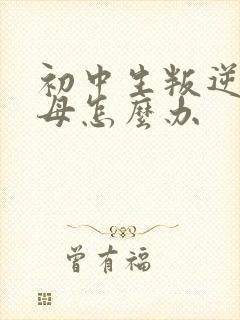 初中生叛逆
母怎麼办
曾有福